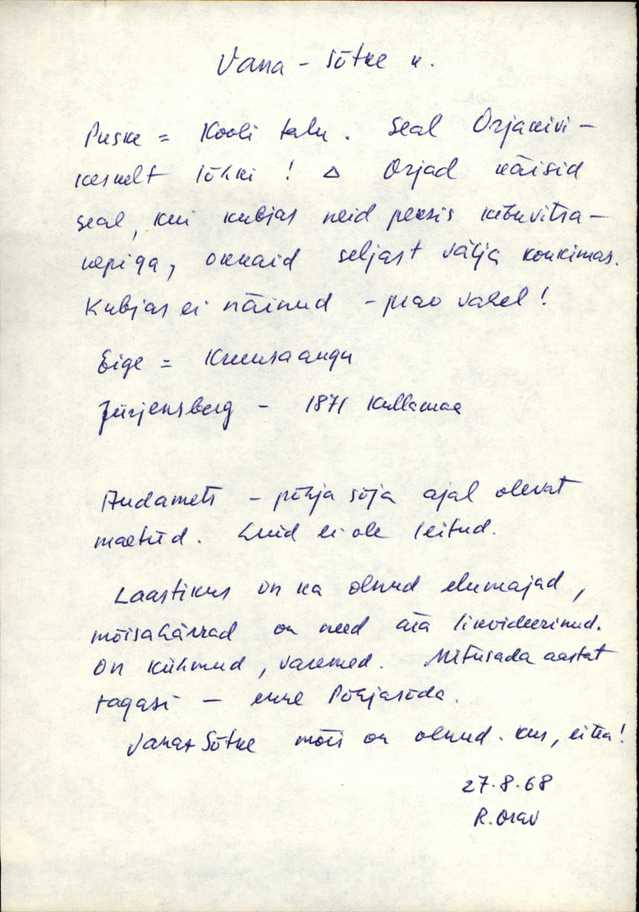 Vana - Sõtke k.
Puske = Kooli talu. Seal Orjakivi -
keskelt lõhki! △ Orjad käisid
seal, kui kubjas neid peksis kibuvitsa -
kepiga, okkaid seljast välja konkimas.
Kubjas ei näinud - puao vahel!
Eige = Kruusaaugu
Jürjensberg - 1871 Kullamaa
Audamets - põhja sõja ajal olevat
maetud. Luid ei ole leitud.
Laastikus on ka olnud elumajad,
mõisahärrad on need ära likvideerinud.
On kühmud, varemed. Mitusada aastat
tagasi - enne Põhjasõda.
Vanas Sõtke mõis on olnud. Kus, ei tea!
27.8.68
R. Orav